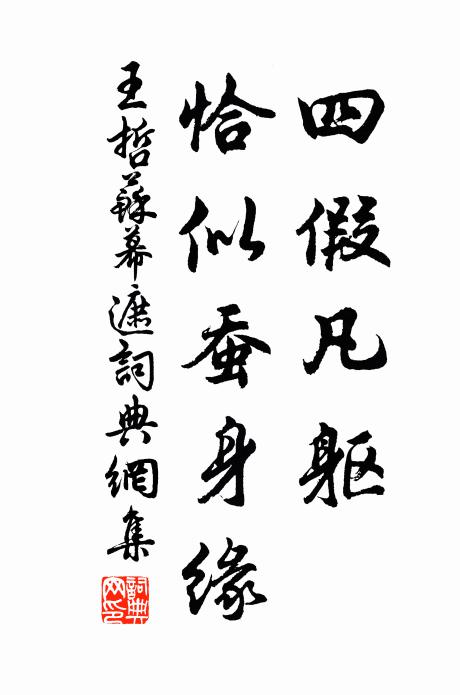 四假凡躯
恰似蚕身缘
王哲蘇幕遮詞典網集
詞典
网印